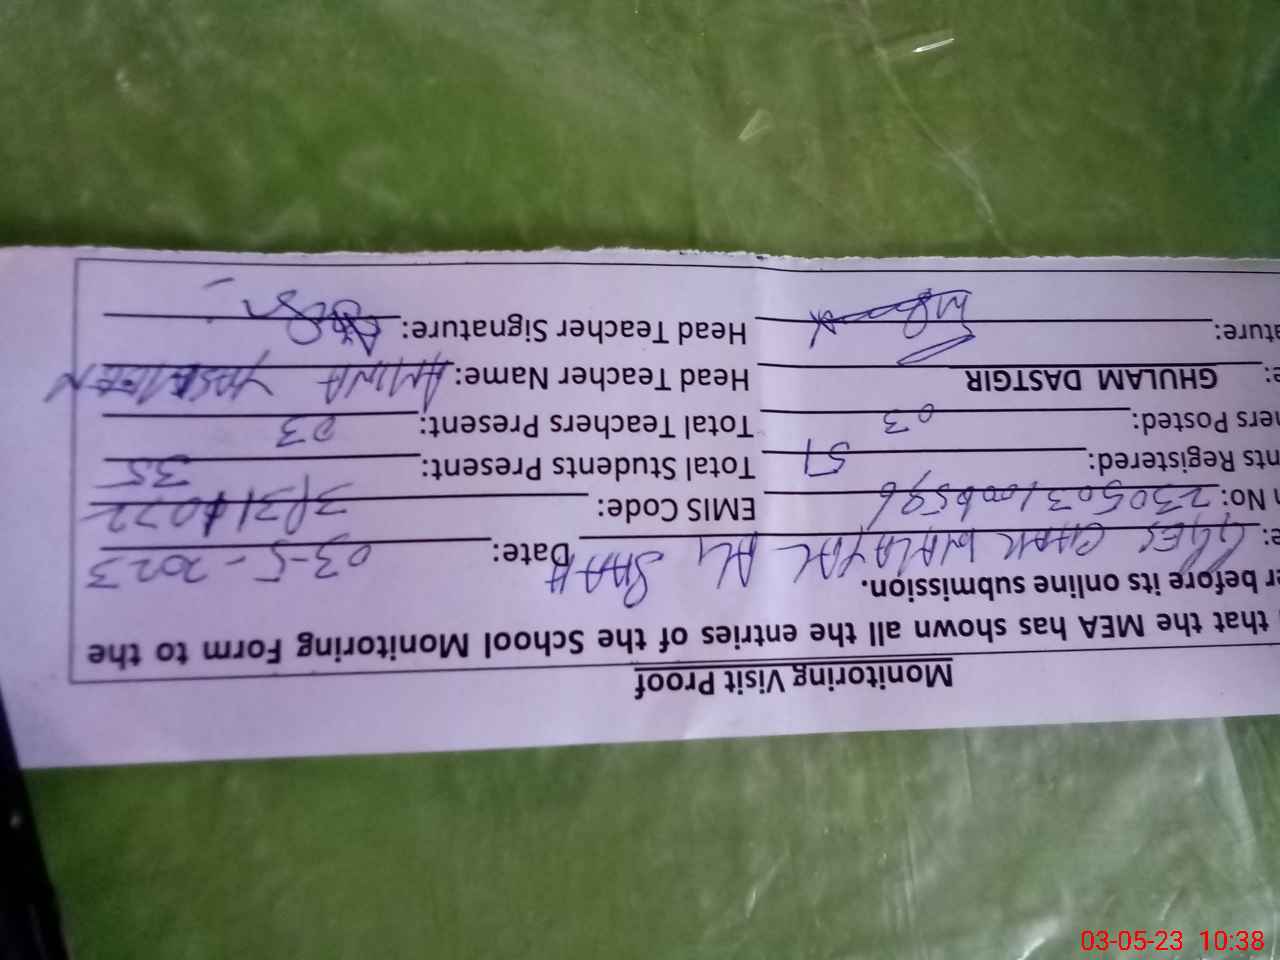 Monitoring Visit Proof
that the MEA has shown all the entries of the School Monitoring Form to the
er before its online submission.
e: GGES CHAK WALAYAL ALI SHAH Date: 03-5-2023
n No: 230503100b596 EMIS Code:
nts Registered: 51 Total Students Present: 35
hers Posted: 03 Total Teachers Present: 03
e: GHULAM DASTGIR Head Teacher Name: AMINA YASMEEN
ature: Head Teacher Signature:
03-05-23 10:38